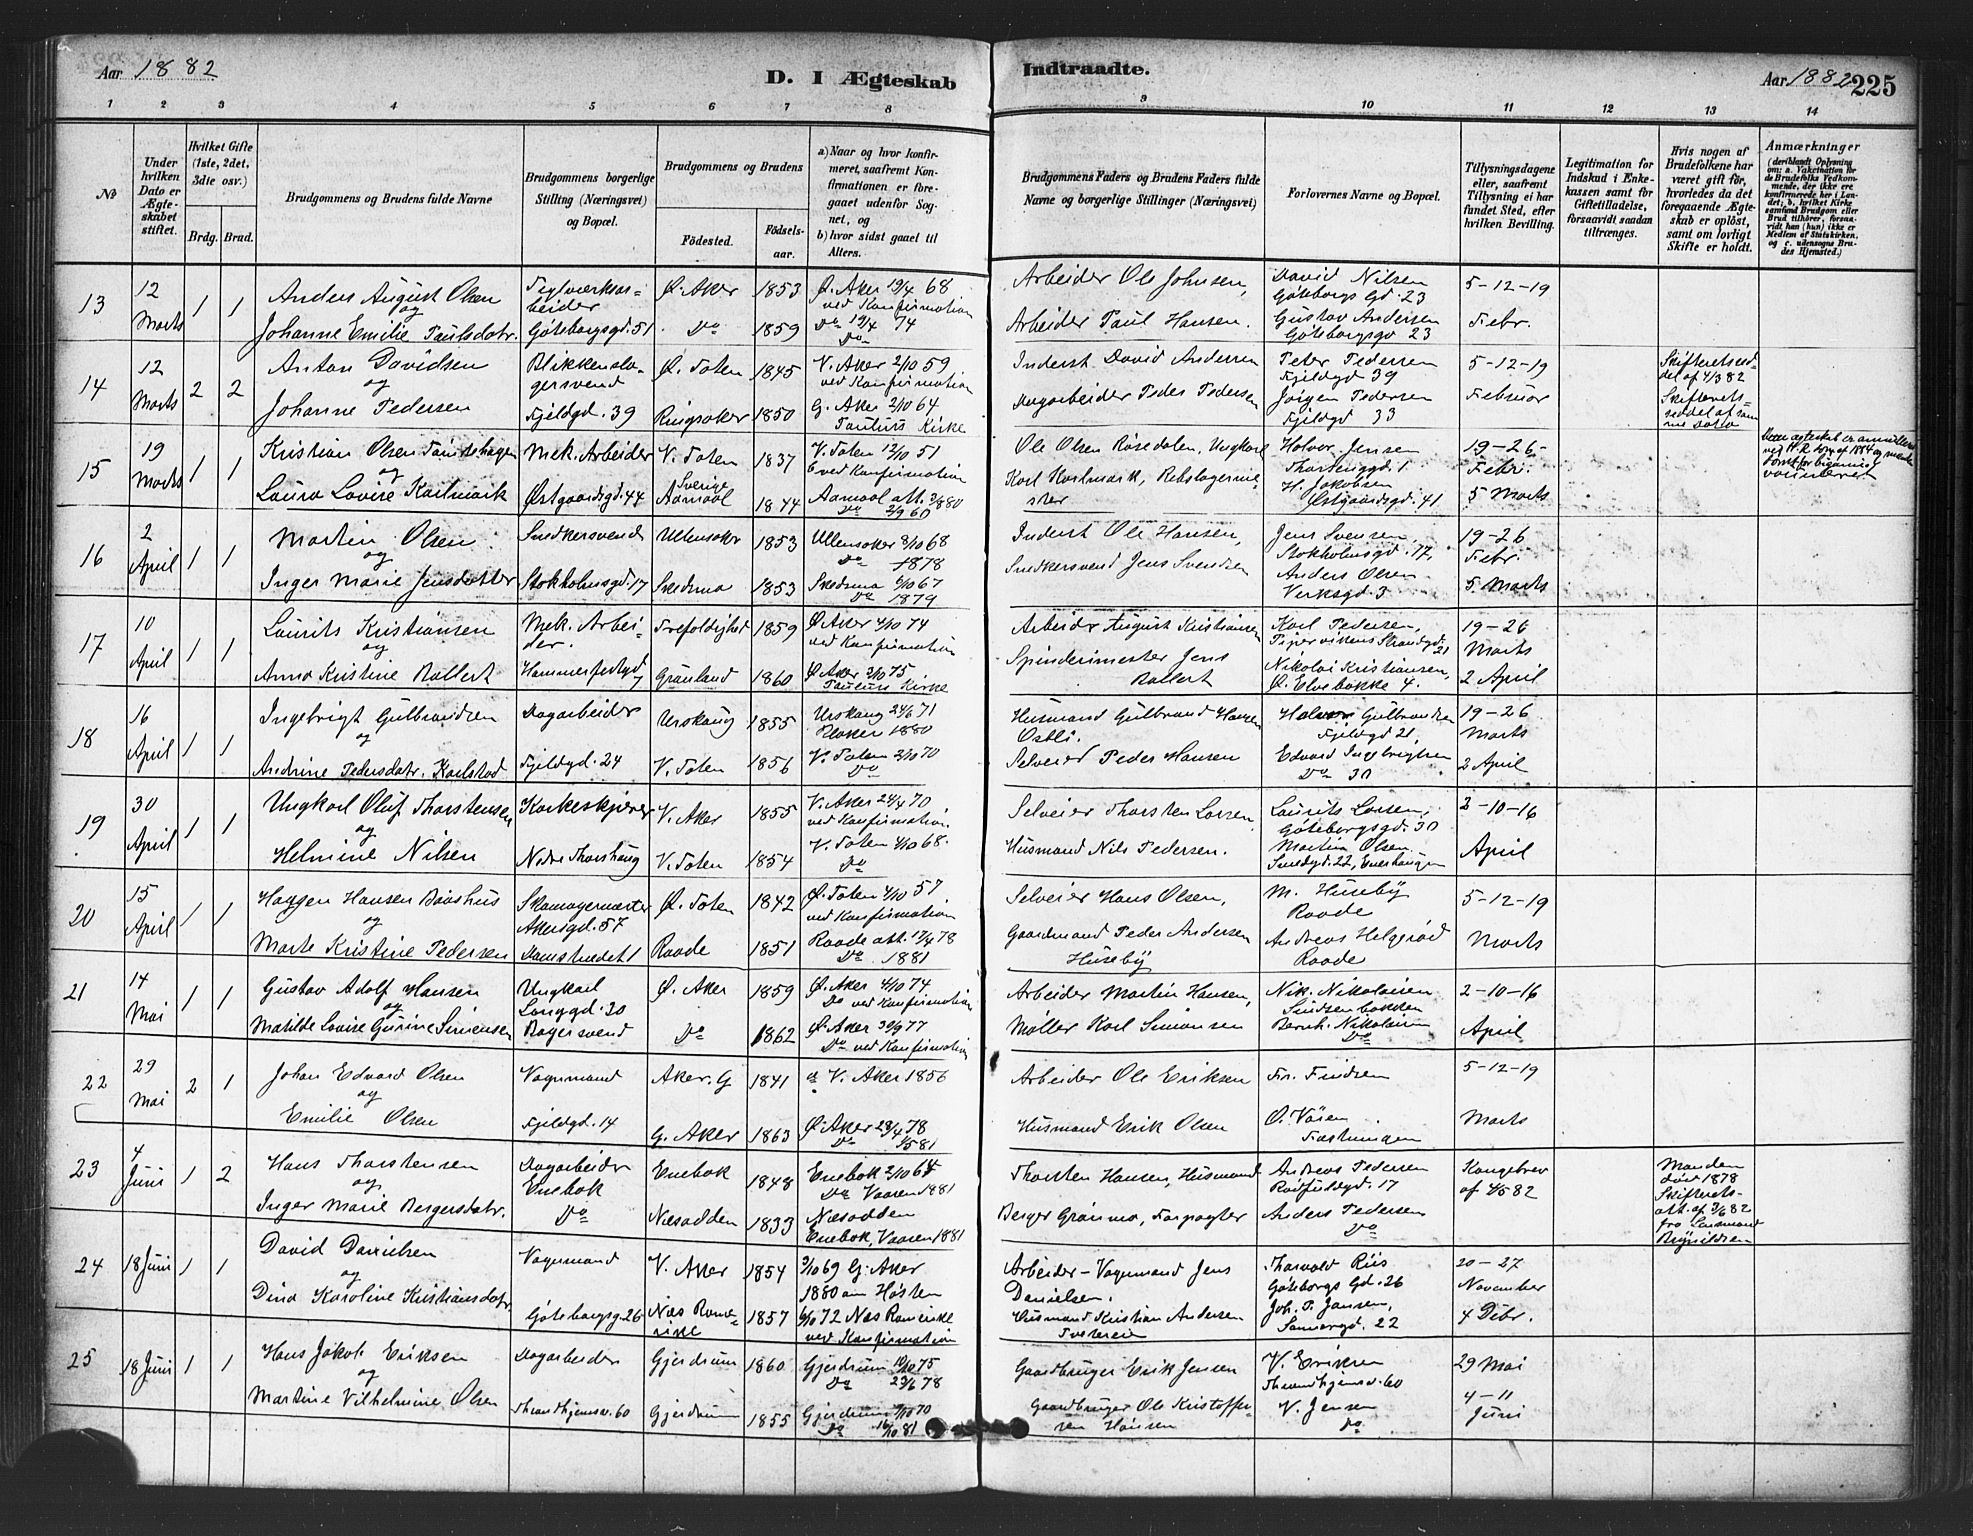 Aar 1882
D. I Ægteskab Indtraadte.
Aar 1882 225
1 2 3 4 5 6 7 8 9 10 11 12 13 14
No
Under hvilken Dato er Ægteskabet stiftet.
Hvilket Gifte (1ste, 2det, 3die osv.)
Brdg. Brud.
Brudgommens og Brudens fulde Navne
Brudgommens borgerlige Stilling (Næringsvei) og Bopæl.
Brudgommens og Brudens
Fødested. Fødselsaar.
a) Naar og hvor konfirmeret, saafremt Konfirmationen er foregaaet udenfor Sognet, og
b) hvor sidst gaaet til Alters.
Brudgommens Faders og Brudens Faders fulde Navne og borgerlige Stillinger (Næringsvei)
Forlovernes Navne og Bopæl.
Tillysningsdagene eller, saafremt Tillysning ei har fundet Sted, efter hvilken Bevilling.
Legitimation for Indskud i Enkekassen samt for Giftetilladelse, forsaavidt saadan tiltrænges.
Hvis nogen af Brudefolkene har været gift før, hvorledes da det foregaaende Ægteskab er opløst, samt om lovligt Skifte er holdt.
Anmærkninger
(deriblandt Oplysning om: a. Vakcination for de Brudefolks Vedkommende, der ikke ere konfirmerede her i Landet; b. hvilket Kirkesamfund Brudgom eller Brud tilhører, forsaavidt han (hun) ikke er Medlem af Statskirken, og c. udensogns Brudes Hjemsted.)
13 12 Marts 1 1
Anders August Olsen
og
Johanne Emilie Paulsdatr.
Teglværksarbeider
Göteborgsgd. 51
Ø. Aker 1853
Do 1859
Ø. Aker 19/4 68
ved Konfirmation
Do 19/4 74
Do
Arbeider Ole Johnsen,
Arbeider Paul Hansen.
David Nilsen
Göteborgs Gd. 23
Gustav Andersen
Göteborgsgd 23
5-12-19
Febr.
14 12 Marts 2 2
Anton Davidsen
og
Johanne Pedersen
Blikkenslagersvend
Fjeldgd. 39
Ø. Toten 1845
Ringsaker 1850
V. Aker 2/10 59
ved Konfirmation
G. Aker 2/10 64
Paulus Kirke
Inderst David Andersen
Dagarbeider Peder Pedersen
Peter Pedersen
Fjeldgd 39
Jörgen Pedersen
Fjeldgd 33
5-12-19
Februar
Skifteretseddel af 4/3 82
Skifteretsseddel af samme Dato
15 19 Marts 1 1
Kristian Olsen
og
Laura Lovise Karlmark
Mek. Arbeider
Østgaardsgd. 44
V. Toten 1837
Sverige
Aamaal 1844
V. Toten 12/10 51
ved Konfirmation
Aamaal att. 2/8 80
Do 2/9 60
Ole Olsen Rosedalen, Ungkarl
Karl Karlmark, Rebslagermester
Halvor Jensen
Thorteggd. 1
H. Jakobsen
Østgaardsgd. 41
19-26-
Febr.
5 Marts
16 2 April 1 1
Martin Olsen
og
Inger Marie Jensdatter
Snedkersvend
Stokholmsgd. 17
Ullensaker 1853
Skedsmo 1853
Ullensaker 8/10 68
Do 1878
Skedsmo 6/10 67
Do 1879
Inderst Ole Hansen,
Snedkersvend Jens Svendsen
Jens Svensen,
Stokholmsgd. 17,
Anders Olsen
Verksgd. 3
19-26
Febr.
5 Marts
17 10 April 1 1
Laurits Kristiansen
og
Anna Kristine Ballert
Mek. Arbeider.
Hammerfestgd 7
Trefoldighed 1859
Grønland 1860
Ø. Aker 4/10 74
ved Konfirmation
Ø. Aker 3/10 75
Paulus Kirke
Arbeider August Kristiansen
Spinderimester Jens Ballert
Karl Pedersen,
Pipervikens Strandgd. 21
Nikolai Kristiansen,
Ø. Elvebakke 4.
19-26
Marts
2 April
18 16 April 1 1
Ingebrigt Gulbrandsen
og
Andrine Pedersdatr. Karlstad
Dagarbeider
Fjeldgd. 24
Urskaug 1855
V. Toten 1856
Urskaug 24/6 71
1880
V. Toten 2/10 70
Do
Husmand Gulbrand Hansen Østli.
Selveier Peder Hansen
Halvor Gulbrandsen
Fjeldgd 21.
Edvard Ingebrigtsen
Do 30
19-26
Marts
2 April
19 30 April 1 1
Ungkarl Oluf Thorstensen
og
Helmine Nilsen
Korkeskjærer
Nedre Thorshaug
V. Aker 1855
V. Toten 1854
V. Aker 24/4 70
ved Konfirmation.
V. Toten 4/10 68.
Do
Selveier Thorsten Larsen
Husmand Nils Pedersen.
Laurits Larsen,
Göteborgsgd. 30
Martin Olsen.
Smedgd. 22, Enerhaugen
2-10-16
April
20 15 April 1 1
Haagen Hansen Baashus
og
Marte Kristine Pedersen
Skomagermester
Akersgd. 57
Damstredet 1
Ø. Toten 1842
Raade 1851
Ø. Toten 4/10 57
ved Konfirmation
Raade att. 17/4 78
Do 1881
Selveier Hans Olsen,
Gaardmand Peder Andersen Huseby
M. Huseby
Raade
Andreas Helgerød
Raade
5-12-19
Marts
21 14 Mai 1 1
Gustav Adolf Hansen
og
Matilde Lovise Gurine Simensen
Ungkarl
Langgd. 30
Bagersvend
Ø. Aker 1859
Do 1862
Ø. Aker 4/10 74
Do ved Konfirmation
Ø. Aker 30/9 77
Do ved Konfirmation
Arbeider Martin Hansen,
Møller Karl Simonsen
Nik. Nikolaisen
Bernh. Nikolaisen
Do
2-10-16
April
22 29 Mai 2 1
Johan Edvard Olsen
og
Emilie Olsen
Vognmand
Fjeldgd. 14
Aker. G 1841
G. Aker 1863
a V. Aker 1856
Ø. Aker 28/4 78
Do 1/5 81
Arbeider Ole Eriksen
Husmand Erik Olsen
Fr. Findsen
O. Vaisen
Fæstningen
5-12-19
Marts
23 4 Juni 1 2
Hans Thorstensen
og
Inger Marie Bergersdatr.
Dagarbeider
Enebak
Do
Enebak 1848
Næsodden 1833
Enebak 2/10 64
Do Vaaren 1881
Næsodden
Enebak, Vaaren 1881
Thorsten Hansen, Husmand
Berger Grønmo, Forpagter
Andreas Pedersen
Rødfyldgd. 17
Anders Pedersen
Do
Kongebrev
af 4/5 82
Manden
død 1878
Skifterets-
att. af 3/6 82
fra Lensmand
Brynildsen
24 18 Juni 1 1
David Danielsen
og
Dina Karoline Kristiansdatr.
Vognmand
Göteborgsg. 26
V. Aker 1854
Næs Romerike 1857
3/10 69 G. Aker
1880 om Høsten
6/10 72 Næs Romerike
ved Konfirmation
Arbeider-Vognmand Jens Danielsen.
Husmand Kristian Andersen
Thorvald Riis
Göteborgs Gd. 26
Joh. P. Jansen,
Sannergd. 22
20-27
November
4 Debr.
25 18 Juni 1 1
Hans Jakob Eriksen
og
Martine Vilhelmine Olsen
Dagarbeider
Throndhjemsv. 60
Gjerdrum 1860
Gjerdrum 1855
Gjerdrum 10/10 75
Do 23/6 78
Gjerdrum 2/10 70
Do 16/10 81
Gaardbruger Erik Jensen
Gaardbruger Ole Kristoffersen Hansen
V. Eriksen
Throndhjemsv. 60
V. Jensen
Do
29 Mai
4-11
Juni